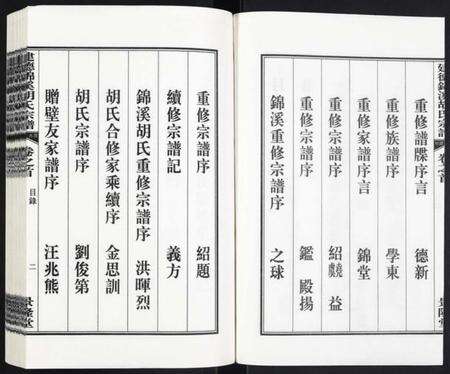 建德錦溪胡氏宗譜 卷之首 景隆堂
重修譜牒序 德新
重修族譜序 學東
重修家譜序言 錦堂
重修宗譜序言 紹虞 堯益
重修宗譜序 鑑殿揚
錦溪重修宗譜序 之球
重修宗譜序 紹題
續修宗譜記 義方
錦溪胡氏重修宗譜序 洪暉烈
胡氏合修家乘續序 金思訓
胡氏宗譜序 劉俊第
贈璧友家譜序 汪兆熊
建德錦溪胡氏宗譜 卷之首 目錄 二 景隆堂